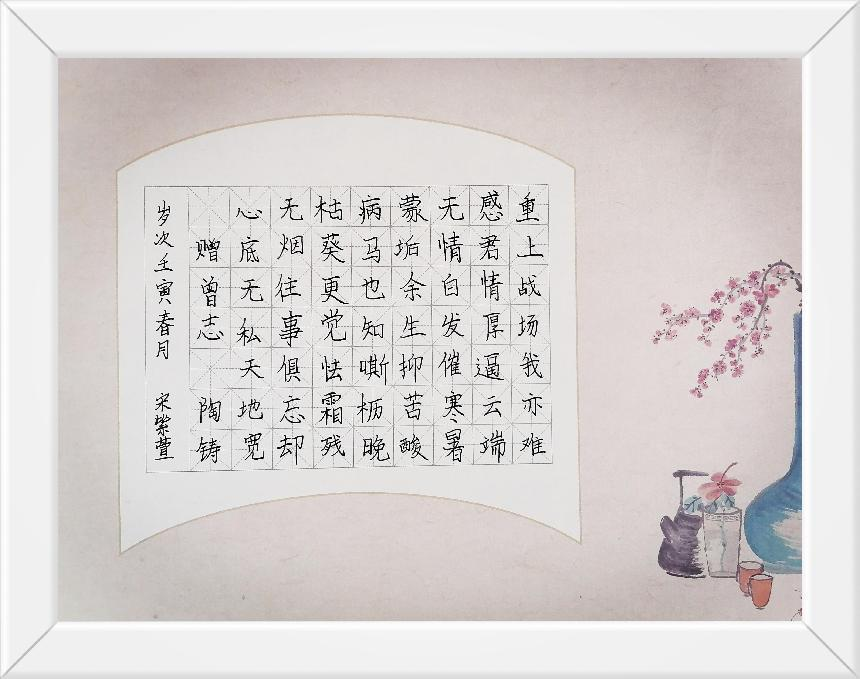 重上战场我亦难
感君情厚逼云端
无情白发催寒暑
蒙垢余生抑苦酸
病马也知嘶枥晚
枯葵更觉怯霜残
无烟往事俱忘却
心底无私天地宽
赠曾志 陶铸
岁次壬寅春月 宋紫萱